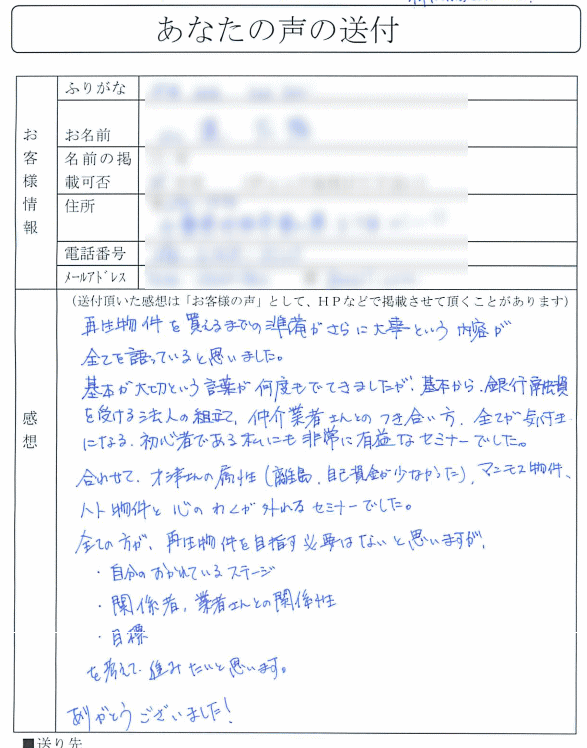 あなたの声の送付
お客様情報
ふりがな
お名前
名前の掲
載可否
住所
電話番号
メールアドレス
感想
(送付頂いた感想は「お客様の声」として、HPなどで掲載させて頂くことがあります)
再生物件を買えるまでの準備がさらに大事という内容が
全てを語っていると思いました。
基本が大切という言葉が何度もでてきましたが、基本から、銀行融資
を受ける法人の組立て、仲介業者さんとのつき合い方、全てが気付き
になる、初心者である私にも非常に有益なセミナーでした。
合わせて、さんの属性(離島、自己資金が少なかった)、マンモス物件、
ハト物件と心のわくが外れるセミナーでした。
全ての方が、再生物件を目指す必要はないと思いますが、
・自分のおかれているステージ
・関係者、業者さんとの関係性
・目標
を考えて進みたいと思います。
ありがとうございました!
■送り先